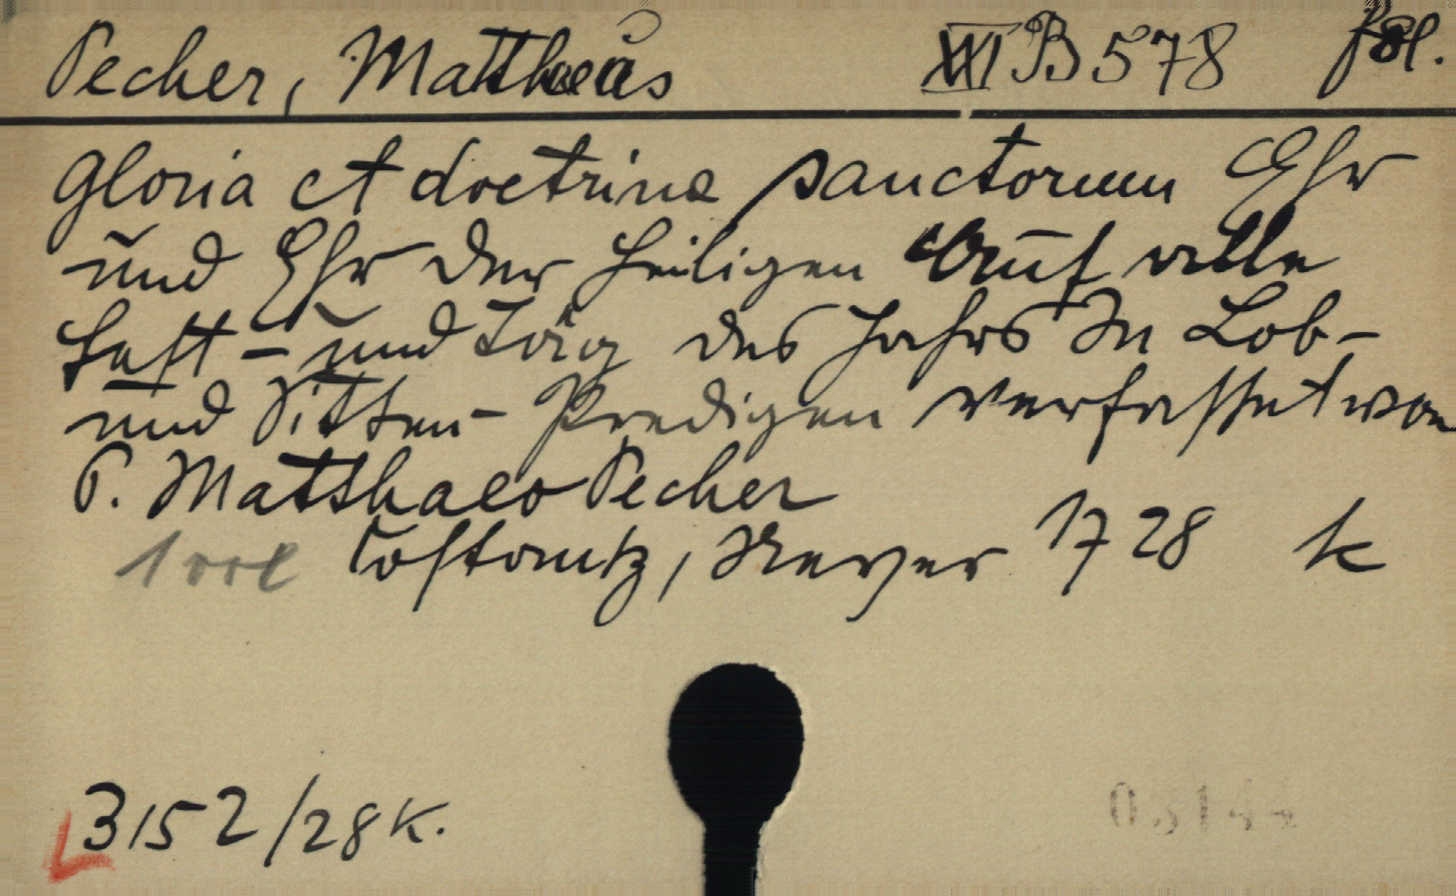 Pecher, Matthaeus XVI B 578 fol.
Gloria et doctrina sanctorum Ehr
und Lehr der Heiligen Auf alle
Fest- und Täg des Jahrs In Lob-
und Sitten- Predigen verfasset von
P. Matthaeo Pecher
1 vol Costantz, Neyer 1728 k
3152/28 K.